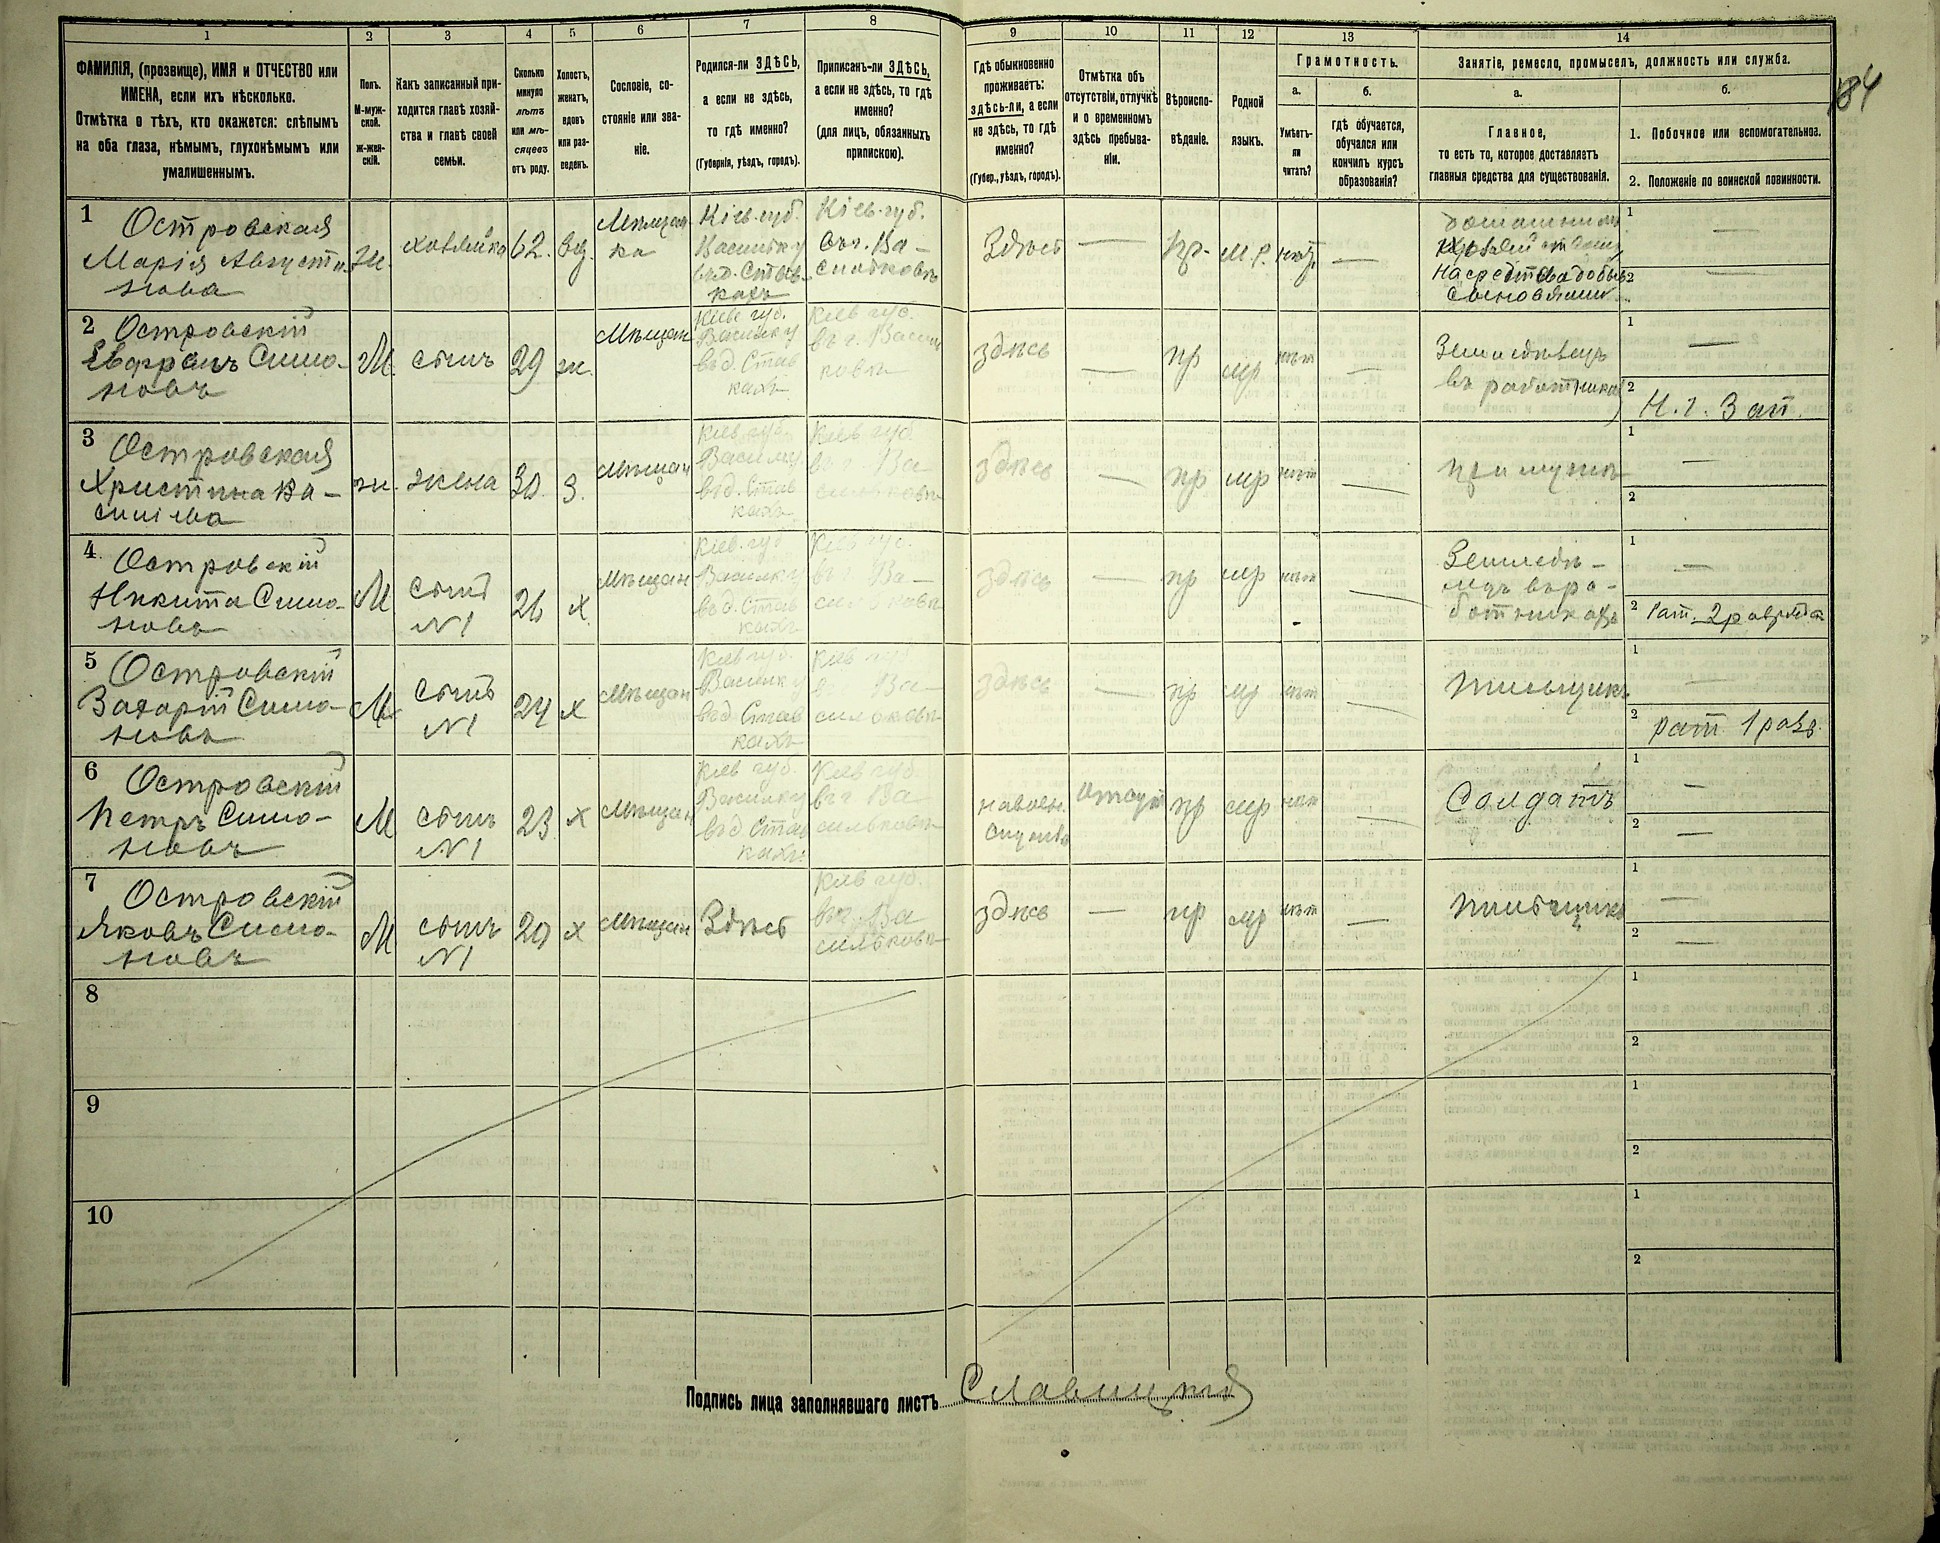 1
2
3
4
5
6
7
8
9
10
11
12
13
14
ФАМИЛІЯ, (прозвище), ИМЯ и ОТЧЕСТВО или
ИМЕНА, если ихъ нѣсколько.
Отмѣтка о тѣхъ, кто окажется: слѣпымъ
на оба глаза, нѣмымъ, глухонѣмымъ или
умалишеннымъ.
Полъ.
М-муж-
ской.
ж-жен-
скій.
Какъ записанный при-
ходится главѣ хозяй-
ства и главѣ своей
семьи.
Сколько
минуло
лѣтъ
или мѣ-
сяцевъ
отъ роду.
Холостъ,
женатъ,
вдовъ
или раз-
веденъ.
Сословіе, со-
стояніе или зва-
ніе.
Родился-ли ЗДѢСЬ,
а если не здѣсь,
то гдѣ именно?
(Губернія, уѣздъ, городъ).
Приписанъ-ли ЗДѢСЬ,
а если не здѣсь, то гдѣ
именно?
(для лицъ, обязанныхъ
припискою).
Гдѣ обыкновенно
проживаетъ:
здѣсь-ли, а если
не здѣсь, то гдѣ
именно?
(Губер., уѣздъ, городъ).
Отмѣтка объ
отсутствіи, отлучкѣ
и о временномъ
здѣсь пребыва-
ніи.
Вѣроиспо-
вѣданіе.
Родной
языкъ.
Грамотность.
а.
Умѣетъ-
ли
читать?
б.
гдѣ обучается,
обучался или
кончилъ курсъ
образованія?
Занятіе, ремесло, промыселъ, должность или служба.
а.
Главное,
то есть то, которое доставляетъ
главныя средства для существованія.
б.
1. Побочное или вспомогательное.
2. Положеніе по воинской повинности.
184
1
Островская
Марія Августи-
нова
ж.
хозяйка
62.
вд.
Мѣщан-
ка
Кіев. губ.
Васильку
въ д. Став-
кахъ
Кіев. губ.
въ г. Ва-
сильковѣ
Здѣсь
—
пр.
м.р.
нѣт
—
1
—
На средства добыв.
сыновьями
2
2
Островскій
Симо-
новъ
М.
сынъ
29
ж.
Мѣщан
Кіев. губ.
Васильку
въ д. Став
кахъ
Кіев губ.
въ г. Васил
ковѣ
здѣсь
—
пр
мр
нѣт
—
Земледѣлецъ
въ работникахъ
1
—
2
Н. г. Зап.
3
Островская
Христина Ва-
силіева
ж.
жена
30.
З.
Мѣщан
Кіев. губ.
Васильку
въ д. Став
кахъ
Кіев губ.
въ г. Ва
сильковѣ
здѣсь
—
пр
мр
нѣт
—
при мужѣ
1
—
2
4
Островскій
Никита Симо-
новъ
М
сынъ
N1
26
х
Мѣщан
Кіев. губ
Васильку
въ д. Став
кахъ
Кіев губ.
въ г. Ва-
сильковѣ
здѣсь
—
пр
мр
нѣт
—
Земледѣ-
лецъ въ ра-
ботникахъ
1
—
2
Рат. 2 разряда
5
Островскій
Захарій Симо-
новъ
М
сынъ
N1
24
х
Мѣщан
Кіев губ.
Васильку
въ д Став
кахъ
Кіев губ
въ г. Ва-
сильковѣ
здѣсь
—
пр
мр
нѣт
—
Пильщикъ
1
—
2
рат 1 разр.
6
Островскій
Петръ Симо-
новъ
М
сынъ
N1
23
х
Мѣщан
Кіев губ.
Васильку
въ д Став
кахъ
Кіев губ.
въ г Ва
сильковѣ
на воен.
службѣ
отсут
пр
мр
нѣт
—
Солдатъ
1
—
2
—
7
Островскій
Яковъ Симо-
новъ
М
сынъ
N1
20
х
Мѣщан
Здѣсь
Кіев губ.
въ г. Ва
сильковѣ
здѣсь
—
пр
мр
нѣт
—
Пильщикъ
1
—
2
—
8
1
2
9
1
2
10
1
2
Подпись лица заполнявшаго листъ